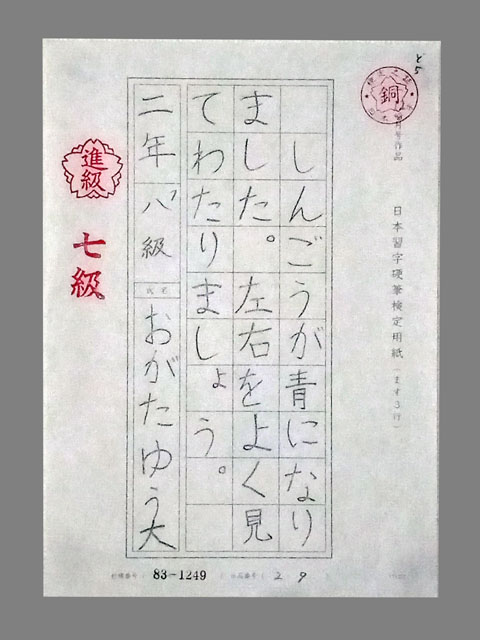 日本習字硬筆検定用紙（ます3行）
銅
しんごうが青になり
ました。左右をよく見
てわたりましょう。
二年 八級 氏名 おがたゆう大
進級
七級
83-1249
29